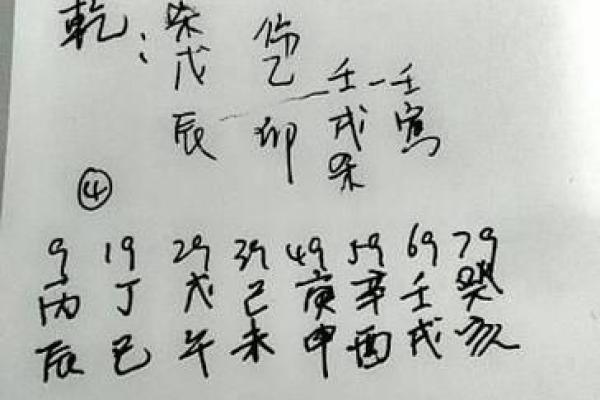 乾： 杀 伤
戊 乙 壬 壬
辰 卯 戌 寅
杀
④
9 19 29 39 49 59 69 79
丙 丁 戊 己 庚 辛 壬 癸
辰 巳 午 未 申 酉 戌 亥